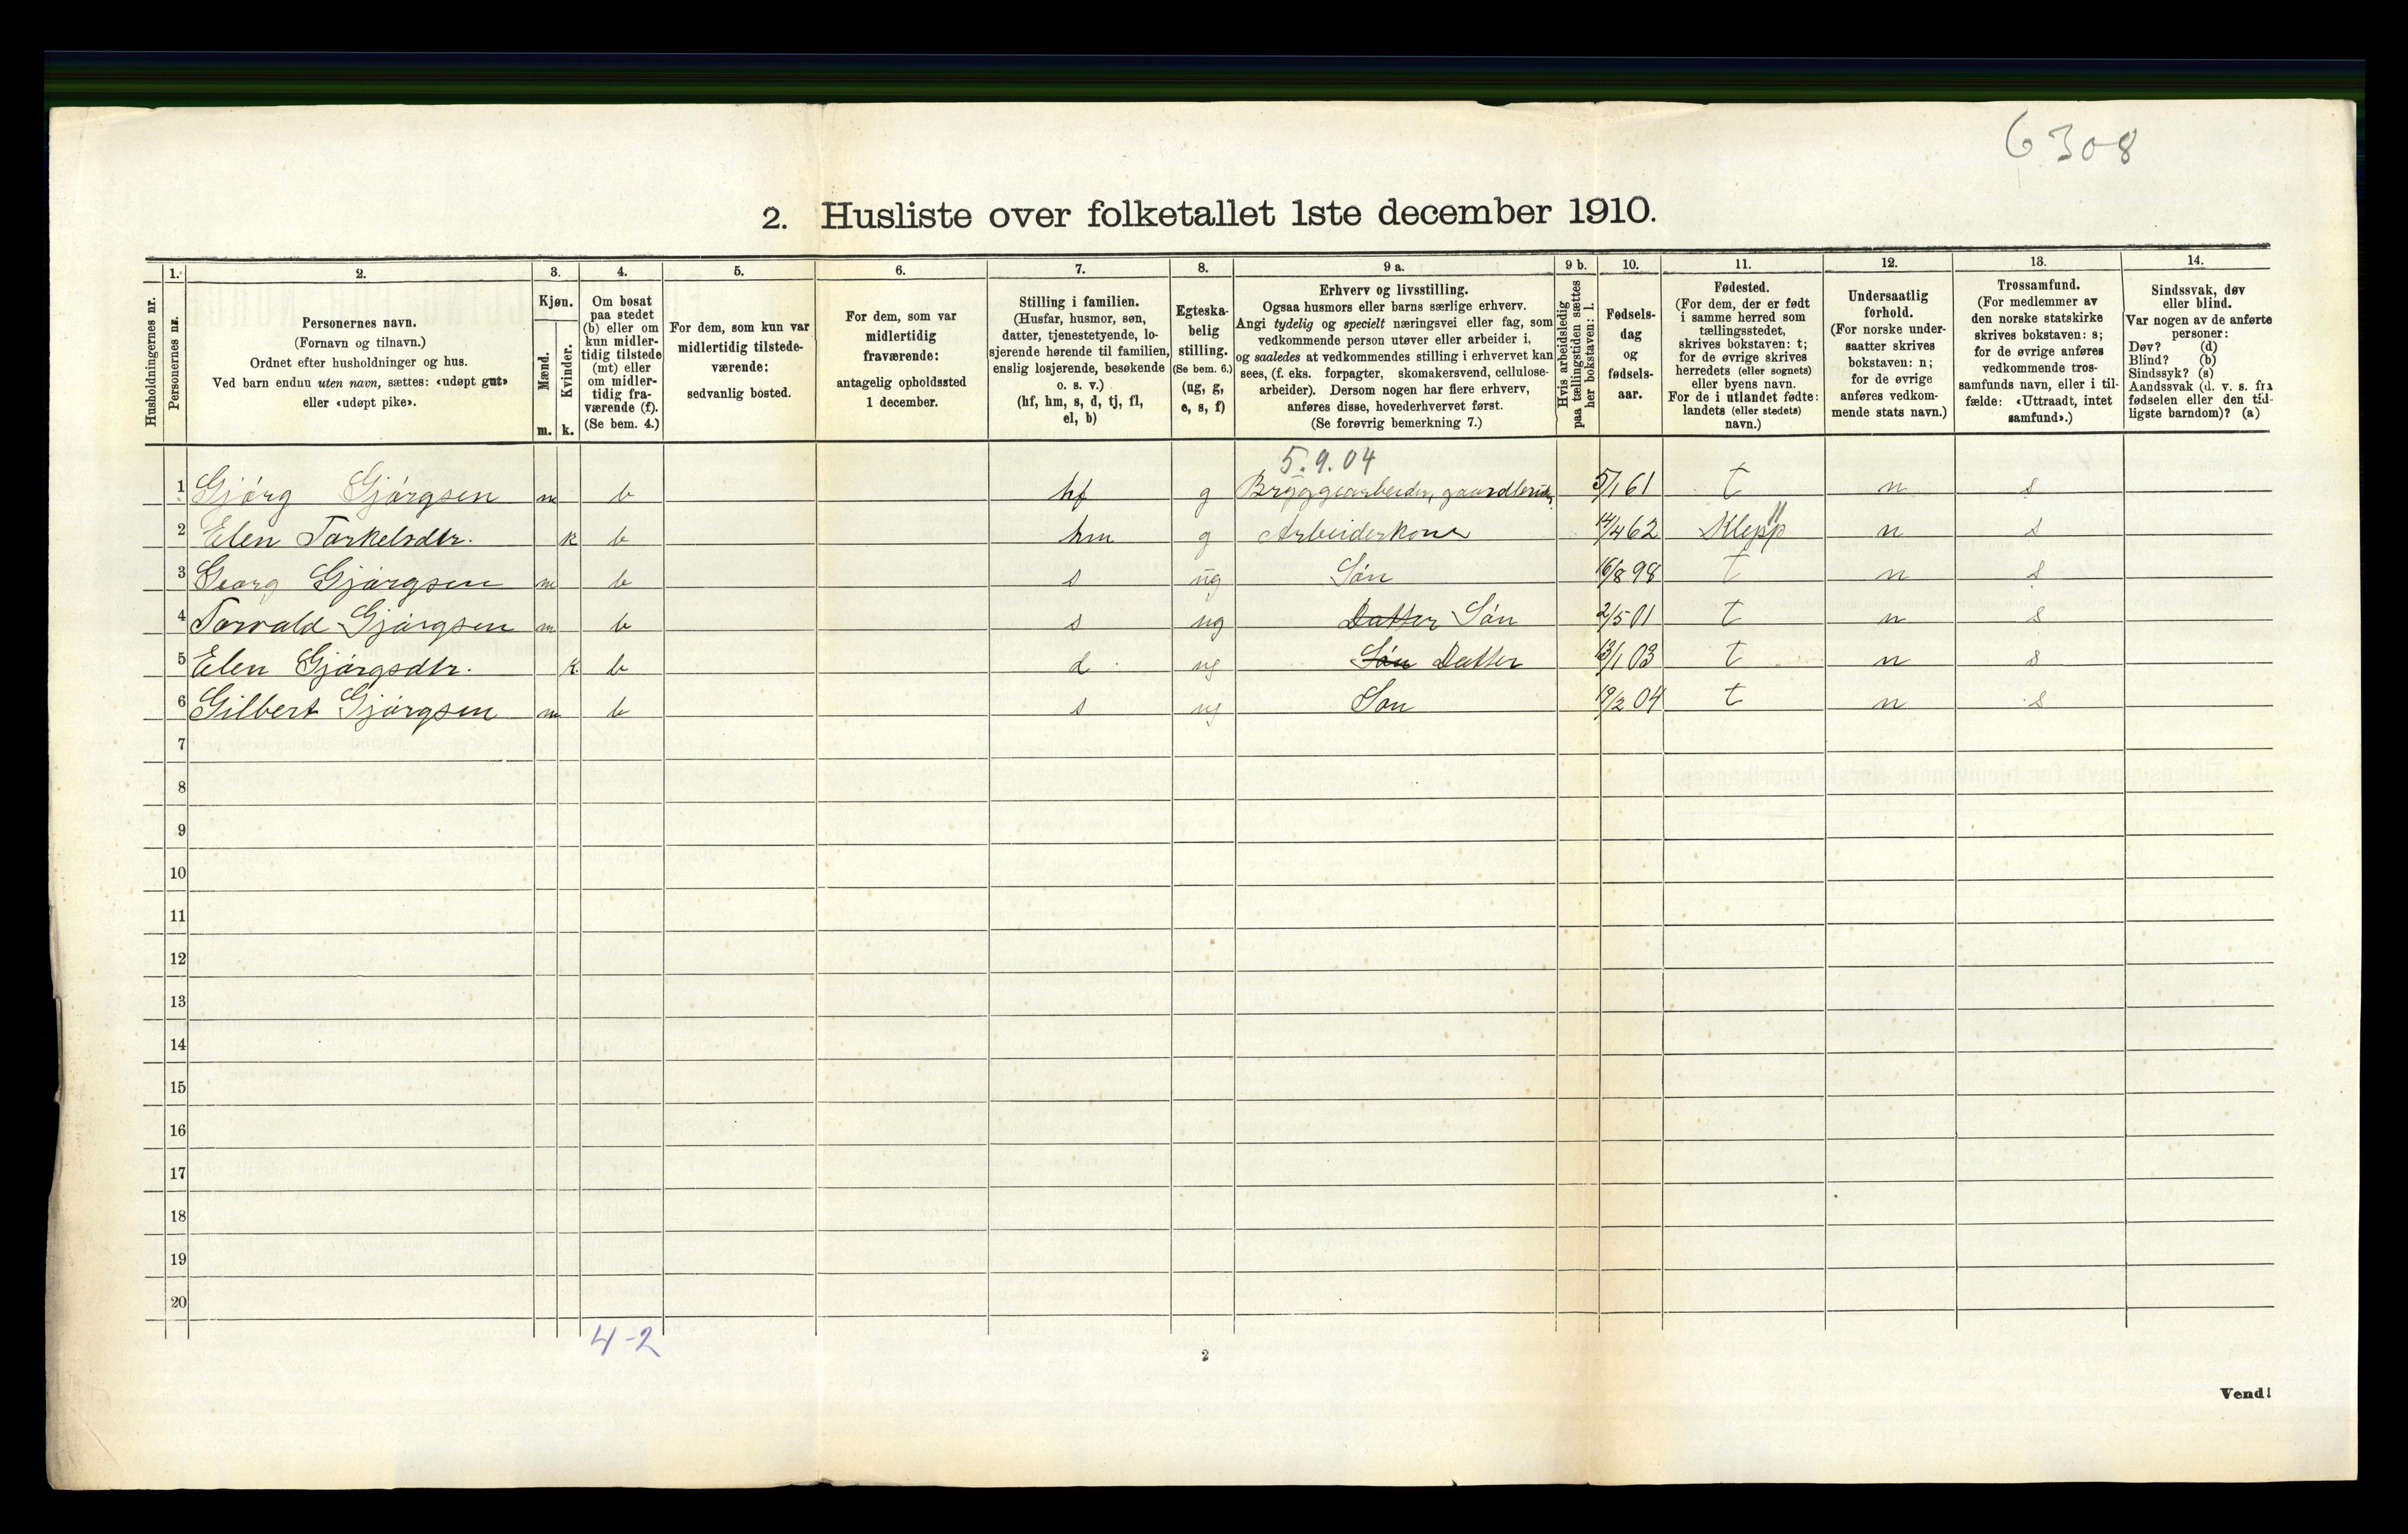 6308
2. Husliste over folketallet 1ste december 1910.
Husholdningernes nr.
1.
Personernes nr.
2.
Personernes navn.
(Fornavn og tilnavn.)
Ordnet efter husholdninger og hus.
Ved barn endnu uten navn, sættes: «udøpt gut»
eller «udøpt pike».
3.
Kjøn.
Mænd.
Kvinder.
m. k.
4.
Om bosat
paa stedet
(b) eller om
kun midler-
tidig tilstede
(mt) eller
om midler-
tidig fra-
værende (f).
(Se bem. 4.)
5.
For dem, som kun var
midlertidig tilstede-
værende:
sedvanlig bosted.
6.
For dem, som var
midlertidig
fraværende:
antagelig opholdssted
1 december.
7.
Stilling i familien.
(Husfar, husmor, søn,
datter, tjenestetyende, lo-
sjerende hørende til familien,
enslig losjerende, besøkende
o. s. v.)
(hf, hm, s, d, tj, fl,
el, b)
8.
Egteska-
belig
stilling.
(Se bem. 6.)
(ug, g,
e, s, f)
9 a.
Erhverv og livsstilling.
Ogsaa husmors eller barns særlige erhverv.
Angi tydelig og specielt næringsvei eller fag, som
vedkommende person utøver eller arbeider i,
og saaledes at vedkommendes stilling i erhvervet kan
sees, (f. eks. forpagter, skomakersvend, cellulose-
arbeider). Dersom nogen har flere erhverv,
anføres disse, hovederhvervet først.
(Se forøvrig bemerkning 7.)
9 b.
Hvis arbeidsledig
paa tællingstiden sættes
her bokstaven: l.
10.
Fødsels-
dag
og
fødsels-
aar.
11.
Fødested.
(For dem, der er født
i samme herred som
tællingsstedet,
skrives bokstaven: t;
for de øvrige skrives
herredets (eller sognets)
eller byens navn.
For de i utlandet fødte:
landets (eller stedets)
navn.)
12.
Undersaatlig
forhold.
(For norske under-
saatter skrives
bokstaven: n;
for de øvrige
anføres vedkom-
mende stats navn.)
13.
Trossamfund.
(For medlemmer av
den norske statskirke
skrives bokstaven: s;
for de øvrige anføres
vedkommende tros-
samfunds navn, eller i til-
fælde: «Uttraadt, intet
samfund».)
14.
Sindssvak, døv
eller blind.
Var nogen av de anførte
personer:
Døv? (d)
Blind? (b)
Sindssyk? (s)
Aandssvak (d. v. s. fra
fødselen eller den tid-
ligste barndom)? (a)
5.9.04
1 Gjörg Gjörgsen m b hf g Bryggearbeider, 5/1 61 t n s
2 Elen Torkelsdtr. k b hm g Arbeiderkone 14/4 62 Klepp 11 n s
3 Georg Gjörgsen m b s ug Sön 16/8 98 t n s
4 Torvald Gjörgsen m b s ug Datter Sön 2/5 01 t n s
5 Elen Gjörgsdtr. k b d ug Sön Datter 13/1 03 t n s
6 Gilbert Gjörgsen m b s ug Son 19/2 04 t n s
7
8
9
10
11
12
13
14
15
16
17
18
19
20
4-2
2
Vend!